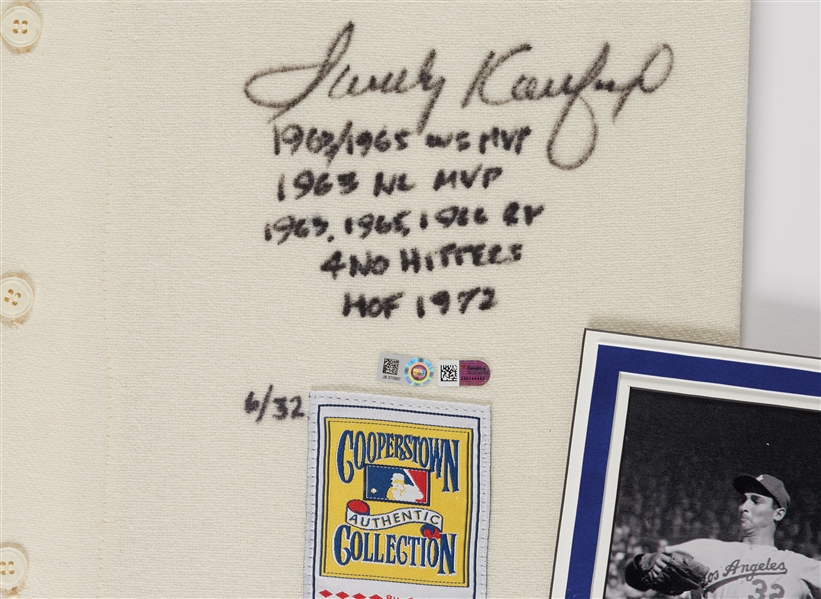 Sandy Koufax
1963/1965 WS MVP
1963 NL MVP
1963, 1965, 1966 CY
4 NO HITTERS
HOF 1972
6/32
COOPERSTOWN
AUTHENTIC
COLLECTION
Los Angeles
32